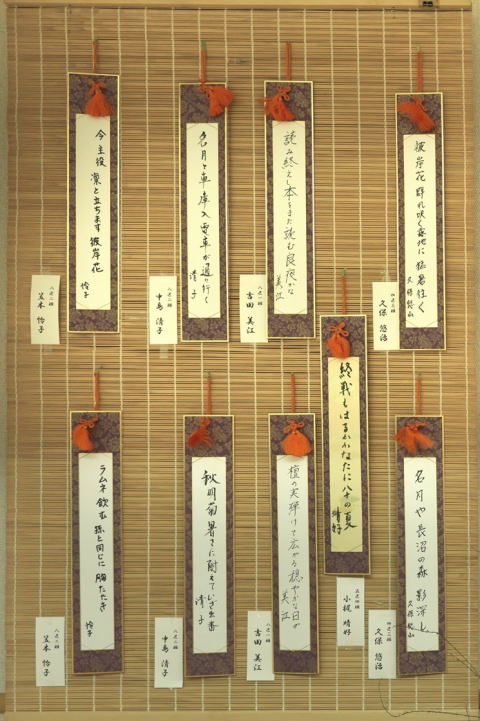 彼岸花 群れ咲く森地に 猛暑往く
久保悠山
四之二組
久保 悠治
読み終えし本をまた読む良夜かな
美江
八之一組
吉田 美江
名月と車庫入電車が通り行く
清子
八之二組
中島 清子
今主役 凛と立ちます 彼岸花
怜子
八之一組
笠本 怜子
名月や 長沼の森 影深し
久保悠山
四之二組
久保 悠治
終戦もはるかかなたに八十の夏
晴好
五之四組
小槻 晴好
檀の実弾けて広がる穏やかな日が
美江
八之一組
吉田 美江
秋明菊暑さに耐えていざ出番
清子
八之二組
中島 清子
ラムネ飲む 孫と同じに 胸たたき
怜子
八之一組
笠本 怜子